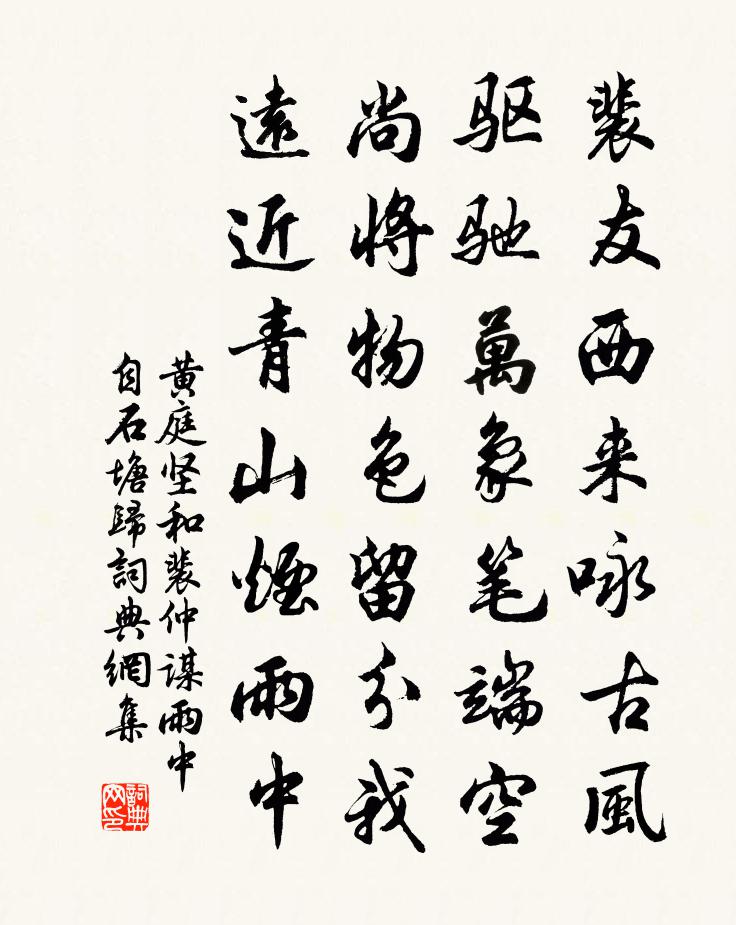 裴友西来咏古風
驱驰萬象笔端空
尚將物色留分我
遠近青山煙雨中
黄庭坚和裴仲谋雨中
自石塘歸詞典網集
詞典网印